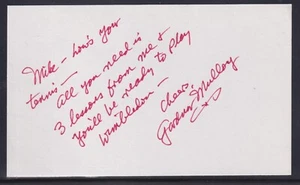 Mike - how's your
tennis -
all you need is
3 lessons from me &
you'll be ready to play
Wimbledon -
Cheers,
Gardnar Mulloy